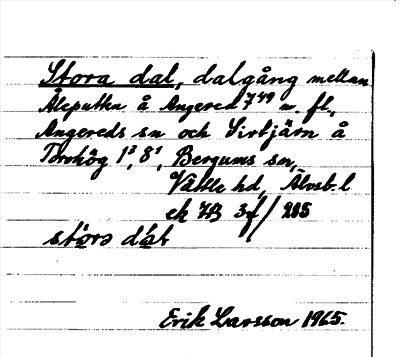 Stora dal, dalgång mellan
Åleputten å Angered 7⁴⁹ m. fl.,
Angereds sn och Sirtjärn å
Torshög 1³, 8¹, Bergums sn,
Vättle hd, Älvsb. l
ek 7B 3f/ 205
Erik Larsson 1965.